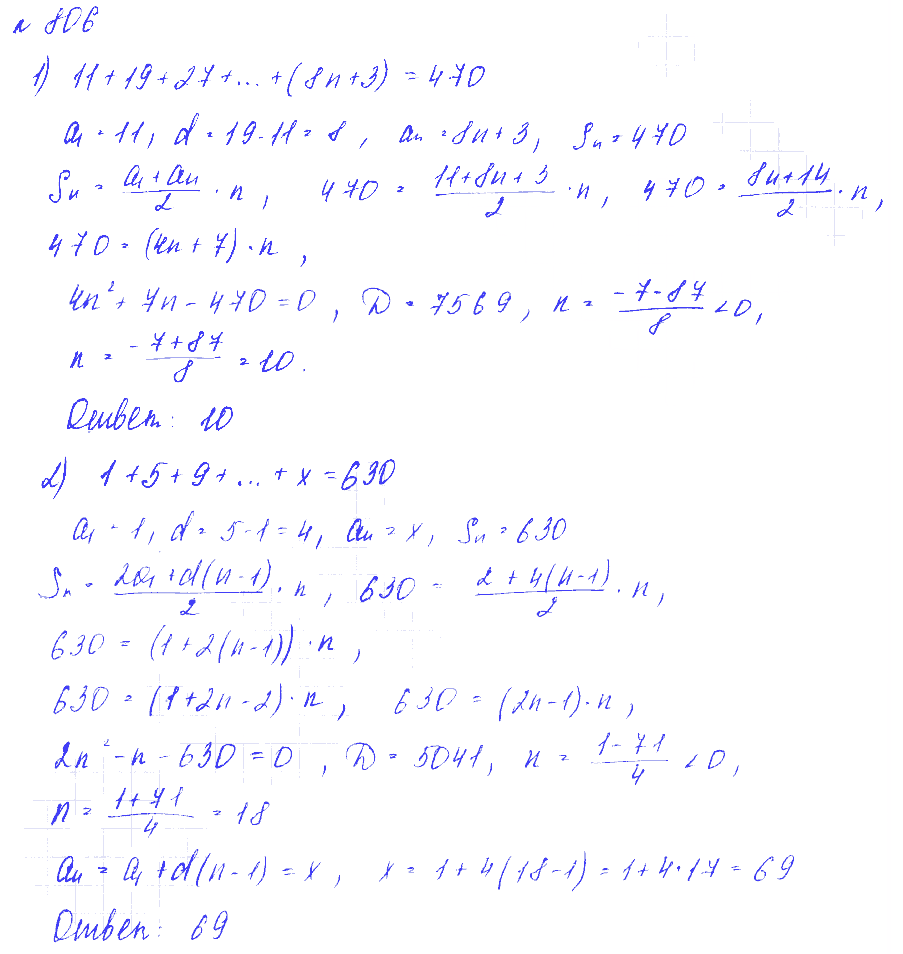 № 806
1) 11 + 19 + 27 + ... + (8n + 3) = 470
a₁ = 11, d = 19 - 11 = 8, aₙ = 8n + 3, Sₙ = 470
Sₙ = (a₁ + aₙ)/2 · n, 470 = (11 + 8n + 3)/2 · n, 470 = (8n + 14)/2 · n,
470 = (4n + 7) · n,
4n² + 7n - 470 = 0, D = 7569, n = (-7 - 87)/8 < 0,
n = (-7 + 87)/8 = 10.
Ответ: 10
2) 1 + 5 + 9 + ... + x = 630
a₁ = 1, d = 5 - 1 = 4, aₙ = x, Sₙ = 630
Sₙ = (2a₁ + d(n - 1))/2 · n, 630 = (2 + 4(n - 1))/2 · n,
630 = (1 + 2(n - 1)) · n,
630 = (1 + 2n - 2) · n, 630 = (2n - 1) · n,
2n² - n - 630 = 0, D = 5041, n = (1 - 71)/4 < 0,
n = (1 + 71)/4 = 18
aₙ = a₁ + d(n - 1) = x, x = 1 + 4(18 - 1) = 1 + 4 · 17 = 69
Ответ: 69